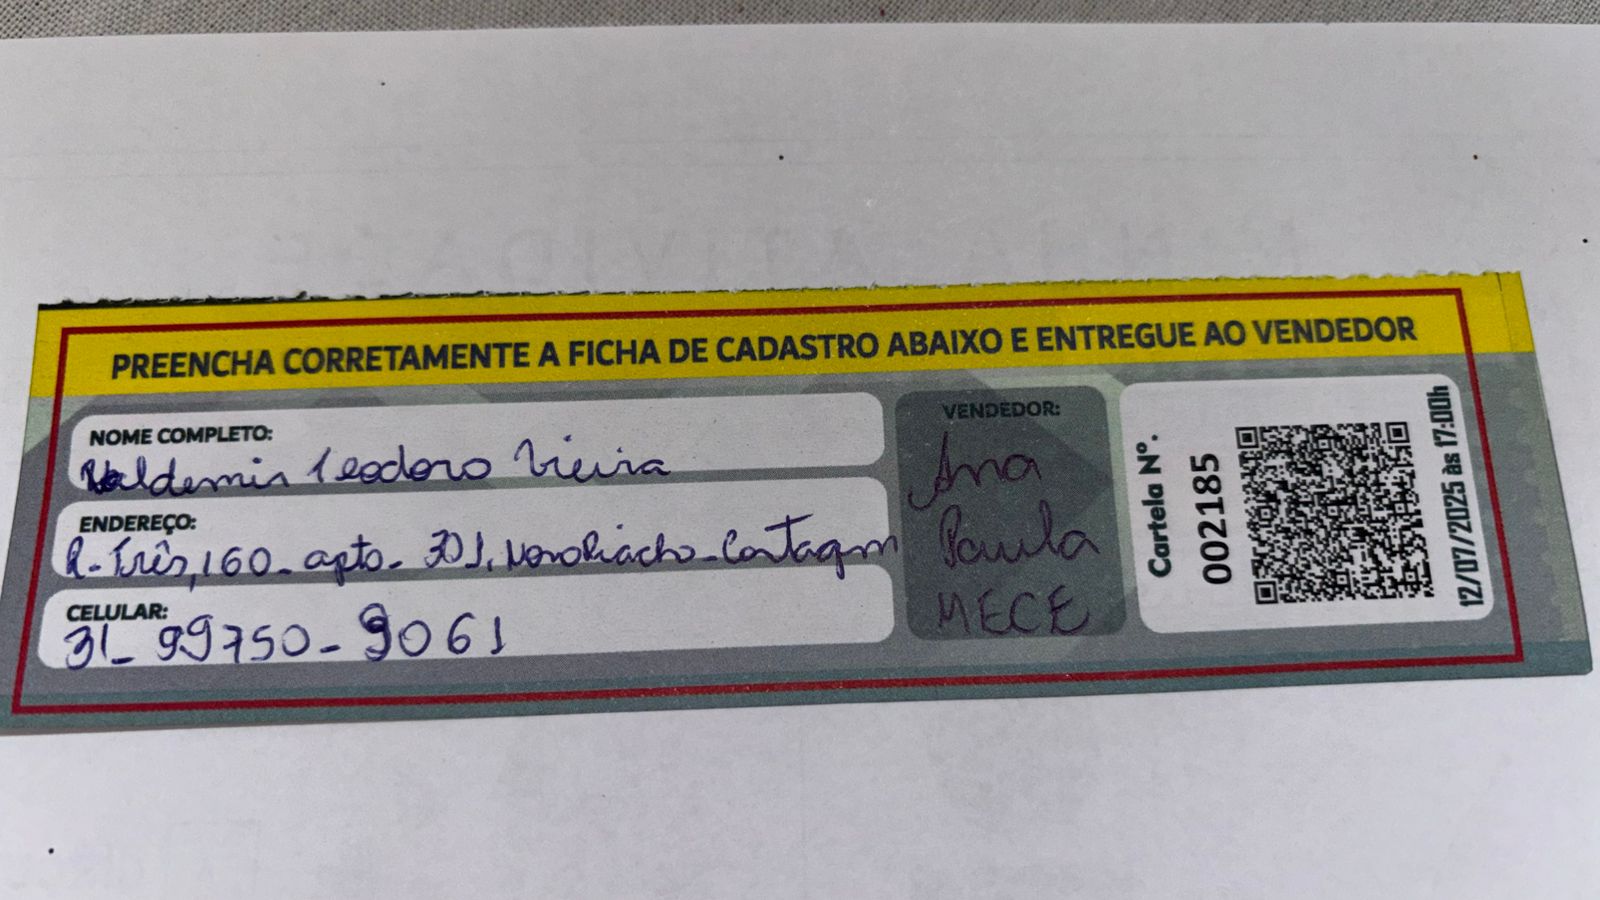 PREENCHA CORRETAMENTE A FICHA DE CADASTRO ABAIXO E ENTREGUE AO VENDEDOR
NOME COMPLETO:
Valdemir Teodoro Vieira
ENDEREÇO:
R. Três, 160 - apto - 301, Novo Riacho - Contagem
CELULAR:
31 - 99750 - 9061
VENDEDOR:
Ana
Paula
MECE
Cartela Nº.
002185
12/07/2025 às 17:00h